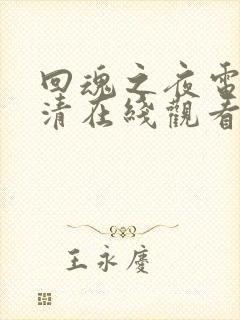 回魂之夜電
清在綫觀看
王永慶